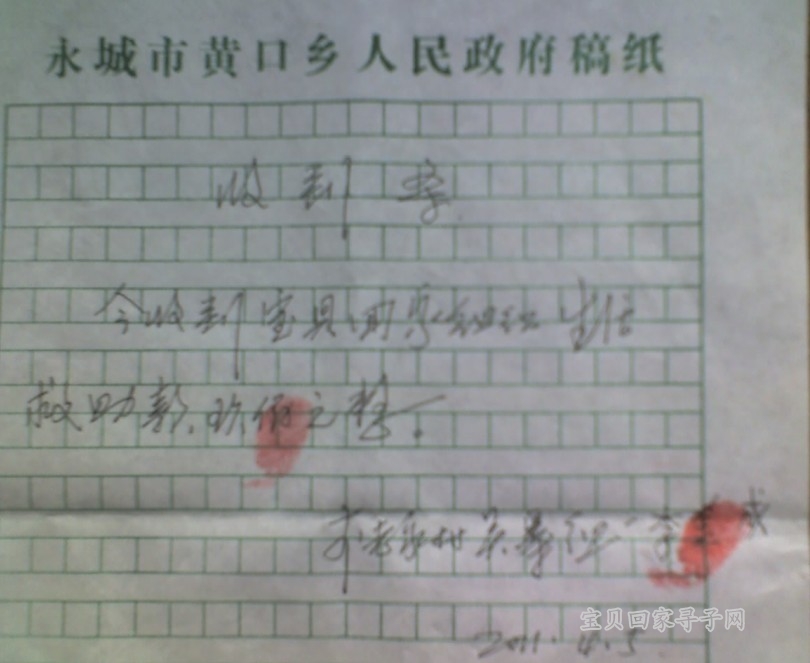 永城市黄口乡人民政府稿纸
收到条
今收到宝贝回家组织生活
救助款,玖佰元整。
李老家村
李
2011.4.5
宝贝回家寻子网